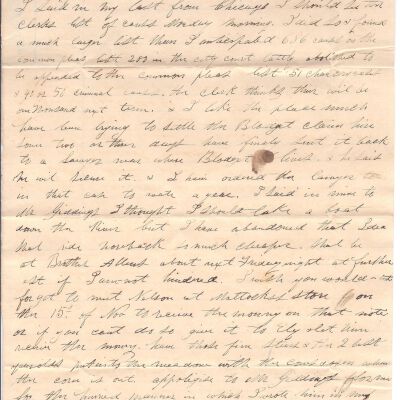 I said in my last from Chicago I should see the
Clerks list of cases Monday morning. I did so & found
a much larger list than I anticipated 636 cases in the
common pleas 200 in the city court lately abolished to
be appended to the common pleas list 51 chancery cases
& 92 or 56 criminal cases. The clerk thinks there will be
one thousand next term. I like the place much
have been trying to settle the Blodget claim here
some two or three days have finely sent it back
to a Lawyer near where Blodget lives & he said
he will it. & I have ordered the lawyer to
in that case to wait a year. I said in mine to
Mr Giddings I thought I should take a boat
down the River but I have abandoned that Idea
that ride horseback is much cheaper. Shall be
at Brother Allens about next Friday night at further
est if I am not hindred I wish you would not
forget to meet Nelson at Mattochas store on
the 15th of Nov to receive the money on that note
or if you cant do so give it to Ely & let him
receive the money. have those five & the 2 best
year olds put into the meadow with the cows when
the corn is out. appologise to Mr Giddings for me
for the hurried manner in which I wrote him in my